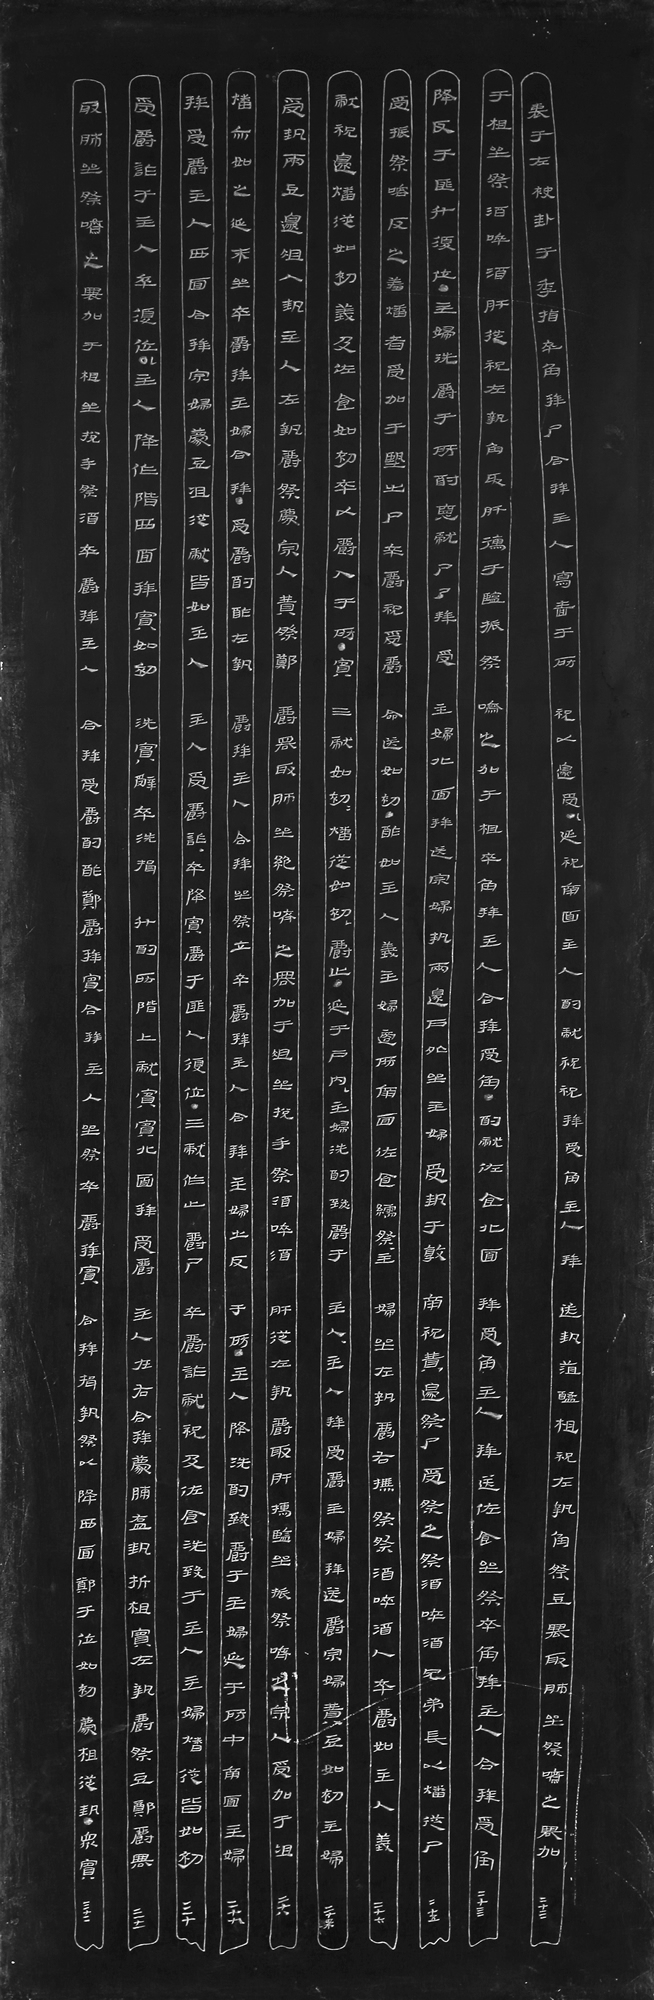 裹于左袂卦于季指卒角拜尸合拜主人寫嗇于房祝以籩受筵祝南面主人酌獻祝祝拜受角主人拜送執菹醢柤祝左執角祭豆興取肺坐祭嚌之興加二十二
于柤坐祭酒啐酒肝從祝左執角取肝擩于醢振祭嚌之加于柤卒角拜主人合拜受角酌獻佐食北面拜受角主人拜送佐食坐祭卒角拜主人合拜受角二十三
降反于匪升復位主婦洗爵于房酌獻尸尸拜受主婦北面拜送宗婦執兩籩戶外坐主婦受執于敦南祝贊籩祭尸受祭之祭酒啐酒兄弟長以燔從尸二十五
受振祭嚌反之羞燔者受加于出尸卒爵祝受爵命送如初酢如主人義主婦適房南面佐食繻祭主婦坐左執爵右撫祭祭酒啐酒入卒爵如主人義
獻祝籩燔從如初義及佐食如初卒以爵入于房賓三獻如初燔從如初爵止延于戶內主婦洗酌致爵于主人主人拜受爵主婦拜送爵宗婦贊豆如初主婦
受執兩豆籩俎入執主人左執爵祭薦宗人贊祭鄭爵興取肺坐絕祭嚌之興加于俎坐挩手祭酒啐酒肝從左執爵取肝擩醢坐振祭嚌之宗人受加于俎二十八
燔亦如之延末坐卒爵拜主婦合拜受爵酌酢左執爵拜主人合拜坐祭立卒爵拜主人合拜主婦出反于房主人降洗酌致爵于主婦延于房中南面主婦二十九
拜受爵主人西面合拜宗婦薦豆俎從獻皆如主人主人受爵酢卒降賓爵于匪入復位三獻作止爵尸卒爵酢獻祝及佐食洗致于主人主婦燔從皆如初三十
受爵酢于主人卒復位主人降作階西面拜賓如初洗賓辭卒洗揖升酌西階上獻賓賓北面拜受爵主人在右合拜薦脯醢執折柤賓左執爵祭豆鄭爵興三十一
取肺坐祭嚌之興加于柤坐挩手祭酒卒爵拜主人合拜受爵酌酢鄭爵拜賓合拜主人坐祭卒爵拜賓合拜揖執祭以降西面鄭于位如初薦柤從執衆賓三十二